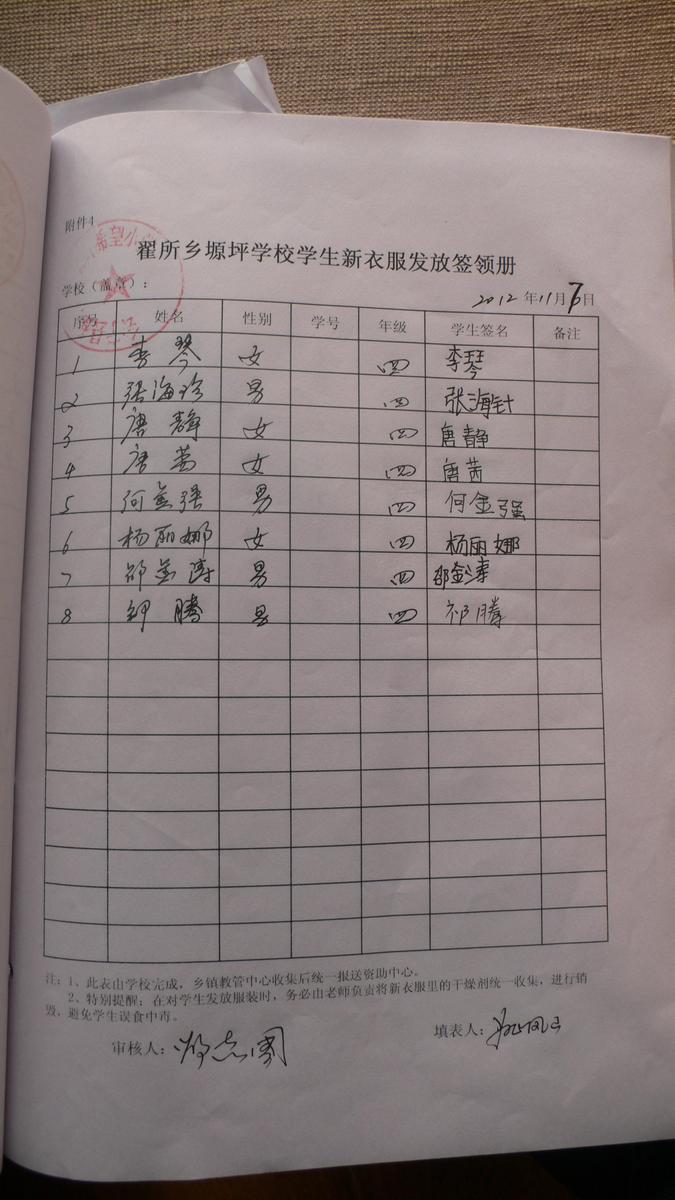 附件4
希望小
翟所乡塬坪学校学生新衣服发放签领册
学校（盖章）： 2012年11月7日
序号 姓名 性别 学号 年级 学生签名 备注
1 李琴 女 四 李琴
2 张海珍 男 四 张海针
3 唐静 女 四 唐静
4 唐茜 女 四 唐茜
5 何金强 男 四 何金强
6 杨丽娜 女 四 杨丽娜
7 邵金涛 男 四 邵金涛
8 腾 男 四 祁腾
注：1、此表由学校完成，乡镇教管中心收集后统一报送资助中心。
2、特别提醒：在对学生发放服装时，务必由老师负责将新衣服里的干燥剂统一收集，进行销
毁，避免学生误食中毒。
审核人： 志国
填表人：